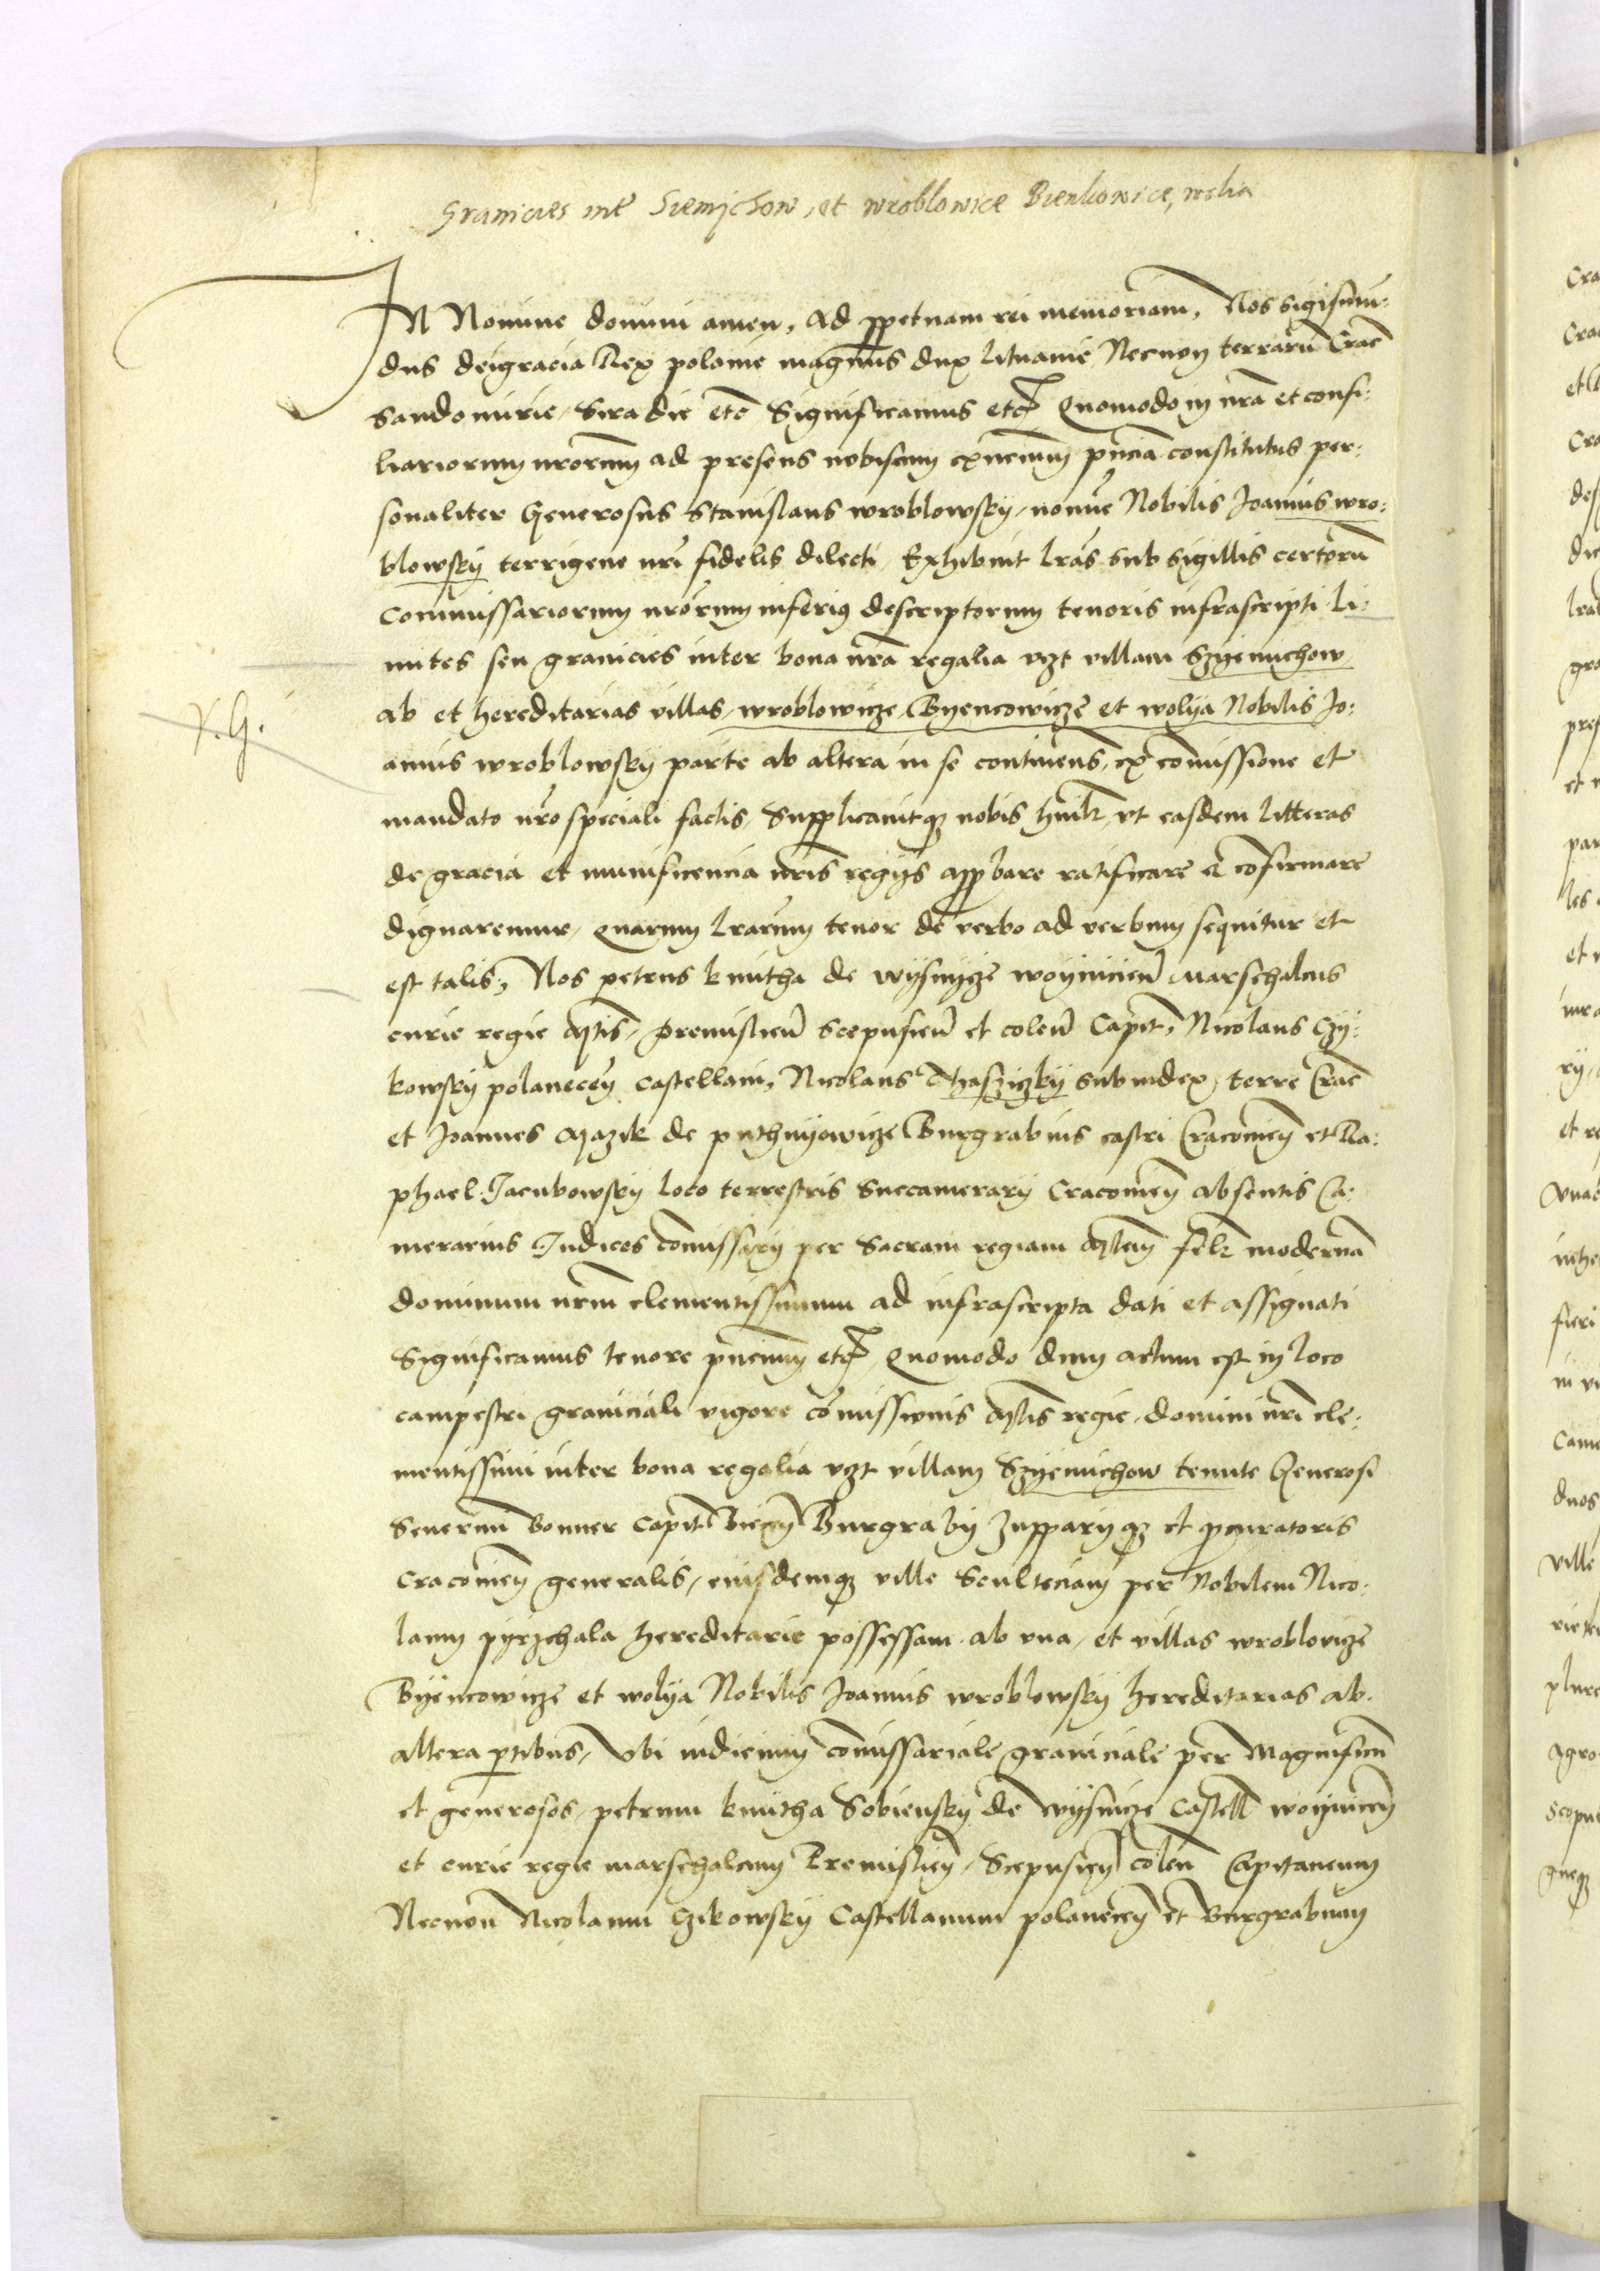 Granicies inter Siemichow, et wroblowice Bienkowice, wolia
IN Nomine domini amen, Ad perpetuam rei memoriam, Nos Sigismu-
dus dei gracia Rex polonie magnus dux lituanie Necnon terrarum Crac
Sandomirie, Siradie etc Significamus etc Quomodo in nrã et consi-
liariorum nrorum ad presens nobiscum exneium pncia constitutus per-
sonaliter Generosus Stanislaus wroblowsky, nomine Nobilis Joannis wro-
blowsky terrigene nri fidelis dilecti Exhibuit lras sub sigillis certorum
Commissariorum nrorum inferius descriptorum tenoris infrascripti li-
mites seu granicies inter bona nra regalia vzt villam Szyemichow
ab et hereditarias villas, wroblowicze Byencowicze et wolya Nobilis Jo-
annis wroblowsky parte ab altera in se continens, ex comissione et
X. G.
mandato nro speciali factis, Supplicavitqz nobis humil, vt easdem litteras
de gracia et munificencia nris regys approbare ratificare et confirmare
dignaremur, Quarum lrarum tenor de verbo ad verbum sequitur et
est talis, Nos petrus kmitha de wysnycze woyniciensis Marschalcus
curie regie Mtis, Premislien Scepusien et colen Capit, Nicolaus Czy-
kowsky polanecen Castellani, Nicolaus subiudex, terre Crac
et Joannes de Burgrabius castri Cracovien et Ra-
phael Jacubowsky loco terrestris Succamerary Cracovien absentis Ca-
merarius Judices comissary per Sacram regiam Mtem modernã
dominum nrm clementissimum ad infrascripta dati et assignati
Significamus tenore pncium etc, Quomodo dum actum est in loco
campestri graniciali vigore comissionis Mtis regie, domini nri cle-
mentissimi inter bona regalia vzt villam Szyemichow tenute Generosi
Severini Bonner Capit Biecen Burgraby Zupparyqz et procuratoris
Cracovien generalis, eiusdemqz ville Scultetiam per Nobilem Nico-
laum pyrzchala hereditarie possessam ab vna, et villas wroblovicze
Byencowicze et wolya Nobilis Joannis wroblowsky hereditarias ab
altera partibus, Vbi iudicium comissariale graniciale per Magnificum
et generosos, petrum kmitha Sobiensky de wysnicze Castell woynicen
et curie regie marschalcum Premislien, Scepusien colen Capitaneum
Necnon Nicolaum Czikowsky Castellanum polanecen et Burgrabium